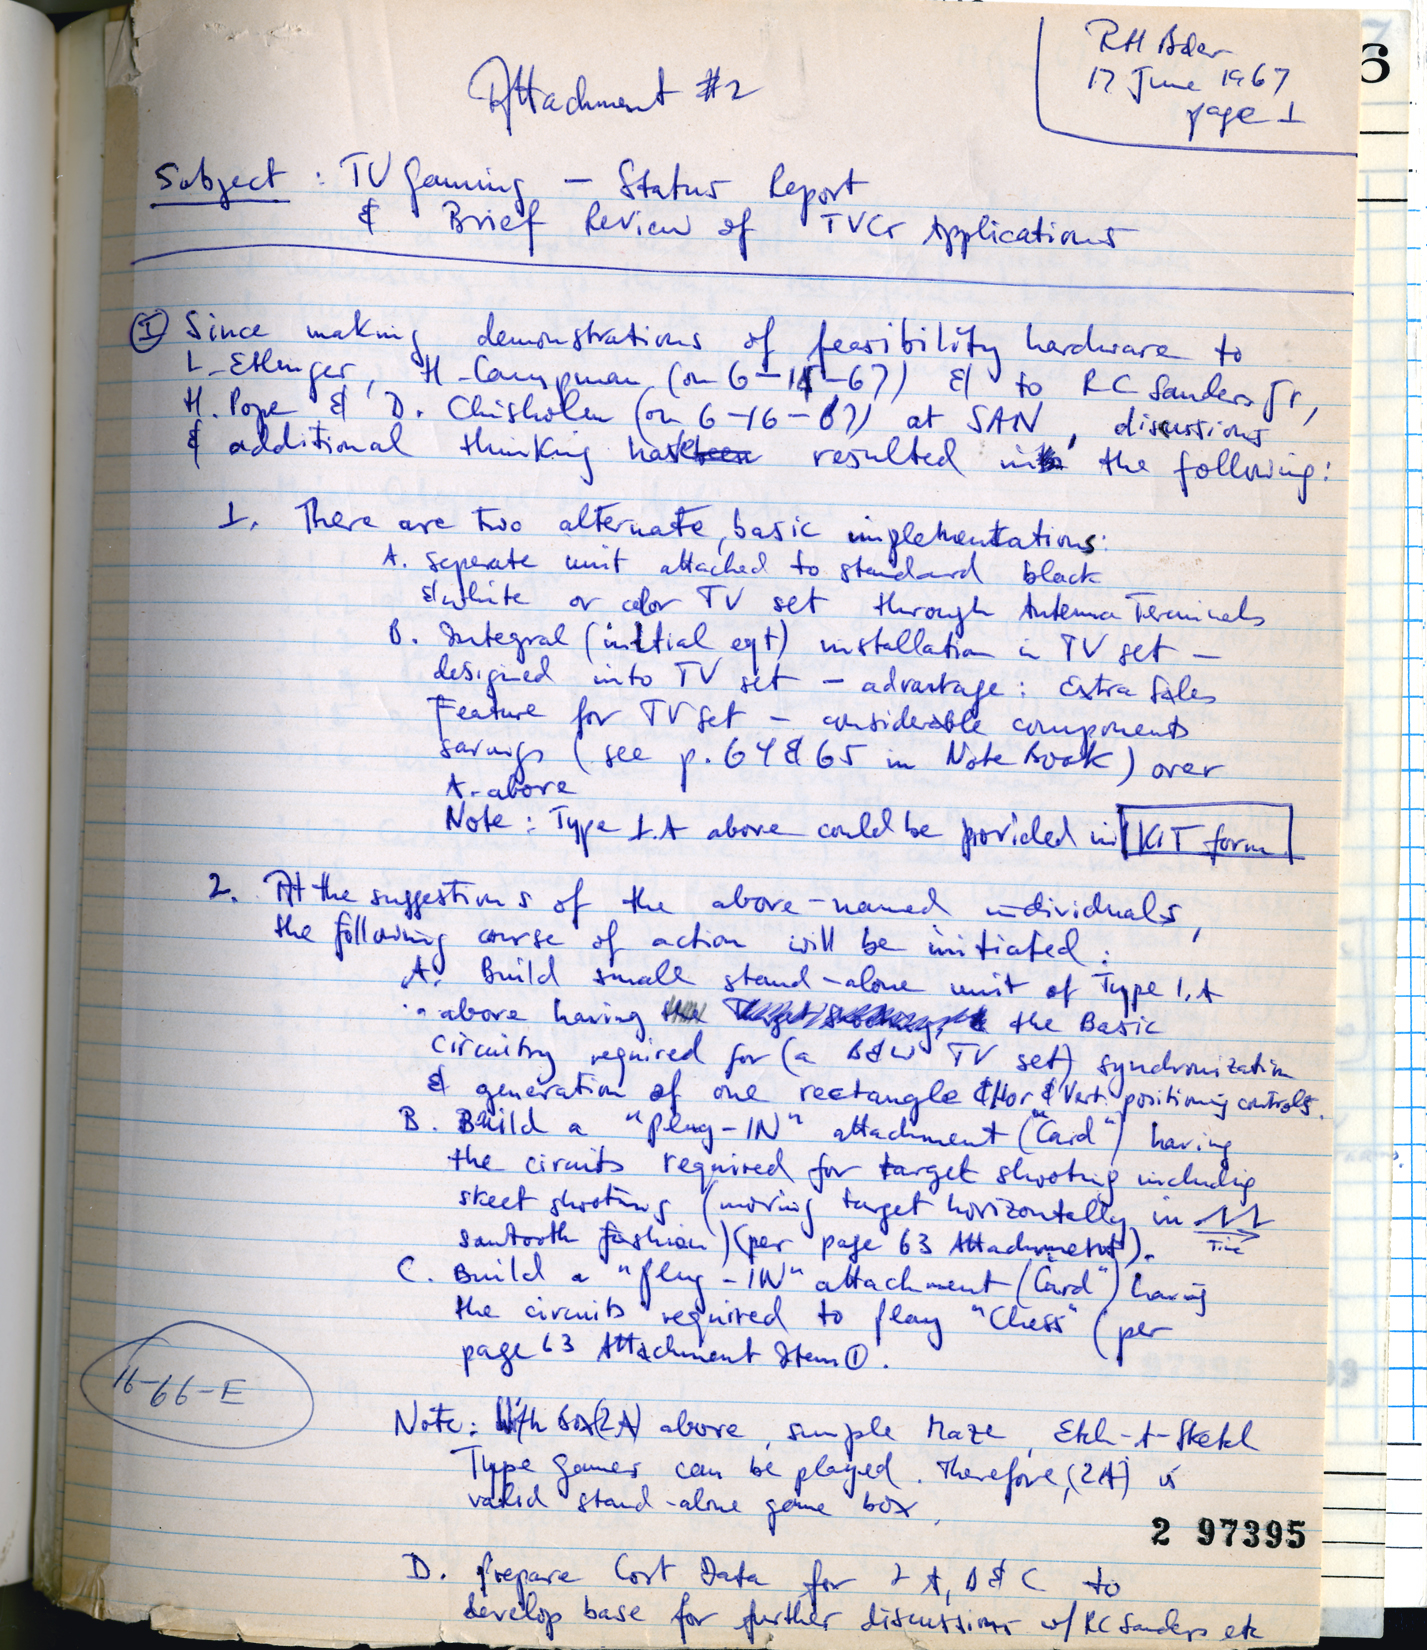 RH Baer
17 June 1967
page 1
6
Attachment #2
Subject : TV Gaming — Status Report
& Brief Review of TVG Applications
I Since making demonstrations of feasibility hardware to
L. Etlinger, H. Campman (on 6-15-67) & to RC Sanders Jr,
H. Pope & D. Chisholm (on 6-16-67) at SAN, discussions
& additional thinking have resulted in the following:
1. There are two alternate, basic implementations:
A. Seperate unit attached to standard black
& white or color TV set through Antenna Terminals
B. Integral (initial eqt) installation in TV set —
designed into TV set — advantage: Extra Sales
Feature for TV set — considerable components
savings (see p. 64 & 65 in Note Book) over
A. above
Note: Type 1.A above could be provided in KIT form
2. At the suggestions of the above-named individuals,
the following course of action will be initiated:
A. Build small stand-alone unit of Type 1.A
above having the Basic
circuitry required for (a B&W TV set) synchronization
& generation of one rectangle & Hor & Vert. positioning controls.
B. Build a "plug-IN" attachment ("Card") having
the circuits required for target shooting including
skeet shooting (moving target horizontally in
Time
sawtooth fashion) (per page 63 Attachment).
C. Build a "plug-IN" attachment ("Card") having
the circuits required to play "Chess" (per
page 63 Attachment Item 1.
16-66-E
Note: With box (2A) above, simple Maze, Etch-A-Sketch
Type games can be played. Therefore, (2A) is
valid stand-alone game box.
2 97395
D. Prepare Cost Data for 2 A, B & C to
develop base for further discussions w/ RC Sanders etc